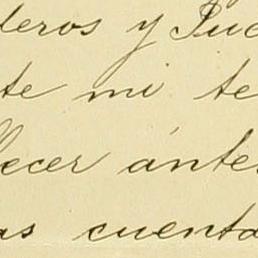 deros y Juc
te mi te
lecer ántes
as cuenta